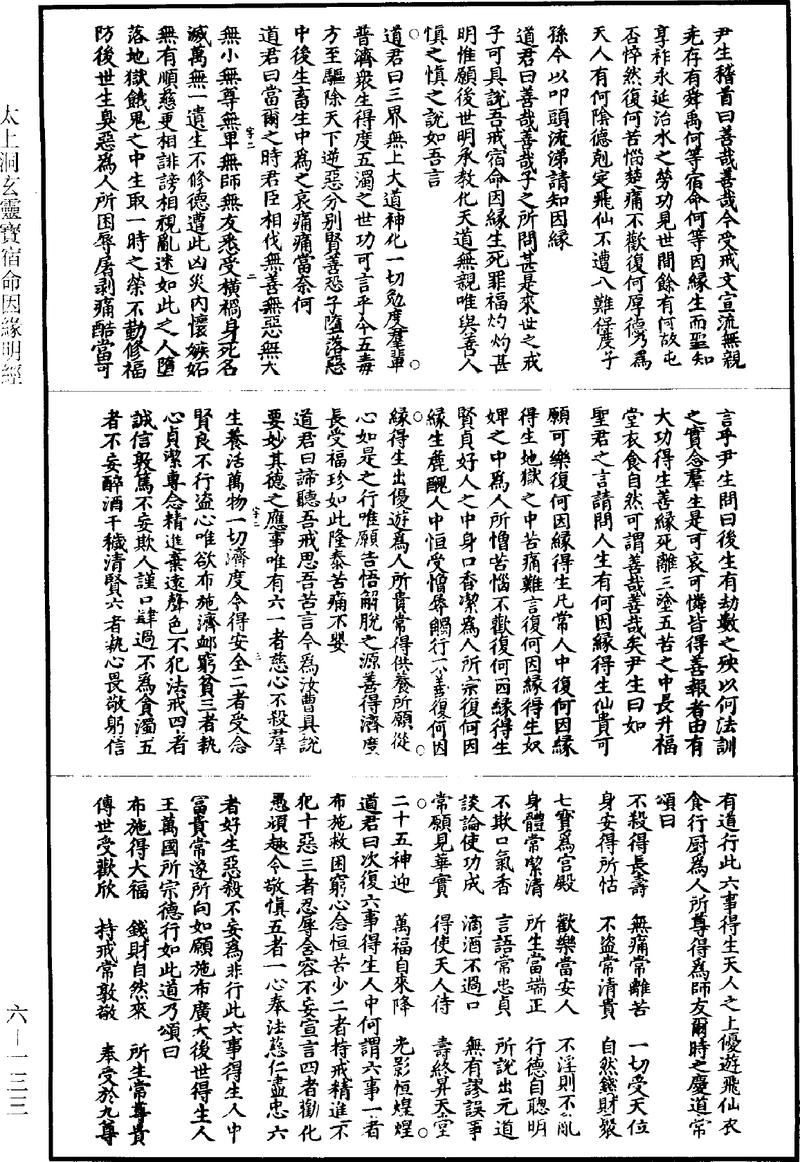 尹生稽首曰善哉善哉今受戒文宣流無親
先存有舜禹何等宿命何等因緣生而聖知
享祚永延治水之勞功見世間餘有何故屯
否悴然復何苦惱楚痛不歡復何厚德乃為
天人有何陰德剋定飛仙不遭八難係度子
孫今以叩頭流涕請知因緣
道君曰善哉善哉子之所問甚是來世之戒
子可具說吾戒宿命因緣生死罪福灼灼甚
明惟願後世明承教化天道無親唯與善人
慎之慎之說如吾言
道君曰三界無上大道神化一切勉度羣輩
普濟衆生得度五濁之世功可言乎今五毒
方至驅除天下逆惡分别賢善恐子墮落惡
中後生畜生中為之哀痛痛當柰何
道君曰當爾之時君臣相伐無善無惡無大
無小無尊無卑無師無友悉受橫禍身死名
滅萬無一遺生不修德遭此凶災內懷嫉妬
無有順慈更相誹謗相視亂迷如此之人墮
落地獄餓鬼之中生取一時之榮不勤修福
防後世生臭惡為人所困辱屠剥痛酷當可
言乎尹生問曰後生有劫數之殃以何法訓
之實念羣生是可哀可憐皆得善報者由有
大功得生善緣死離三塗五苦之中長升福
堂衣食自然可謂善哉善哉矣尹生曰如
聖君之言請問人生有何因緣得生仙貴可
願可樂復何因緣得生凡常人中復何因緣
得生地獄之中苦痛難言復何因緣得生奴
婢之中為人所憎苦惱不歡復何因緣得生
賢貞好人之中身口香潔為人所宗復何因
緣生麁醜人中恒受憎辱觸行不善復何因
緣得生出優遊為人所貴常得供養所願從
心如是之行唯願告悟解脫之源善得濟度
長受福珍如此隆泰苦痛不嬰
道君曰諦聽吾戒思吾苦言今為汝曹具說
要妙其德之應事唯有六一者慈心不殺羣
生養活萬物一切濟度令得安全二者受念
賢良不行盜心唯欲布施濟卹窮貧三者執
心貞潔專念精進棄遠聲色不犯法戒四者
誠信敦篤不妄欺人謹口肆過不為貪濁五
者不妄醉酒干穢清賢六者執心畏敬躬信
有道行此六事得生天人之上優遊飛仙衣
食行厨為人所尊得為師友爾時之慶道常
頌曰
不殺得長壽　無痛常離苦　一切受天位
身安得所怙　不盜常清貴　自然錢財聚
七寶為宮殿　歡樂當安人　不淫則不亂
身體常潔清　所生當端正　行德自聰明
不欺口氣香　言語常忠貞　所說出元道
談論使功成　滴酒不過口　無有謬誤事
常願見華實　得使天人侍　壽終昇天堂
二十五神迎　萬福自來降　光影恒煌煌
道君曰次復六事得生人中何謂六事一者
布施救困窮心念恒苦少二者持戒精進不
犯十惡三者忍辱含容不妄宣言四者勸化
愚頑趣令敬慎五者一心奉法慈仁盡忠六
者好生惡殺不妄為非行此六事得生人中
富貴常遂所向如願施布廣大後世得生人
王萬國所宗德行如此道乃頌曰
布施得大福　錢財自然來　所生常尊貴
傳世受歡欣　持戒常敦敬　奉受於九尊
太上洞玄靈寶宿命因緣明經
六—一三三